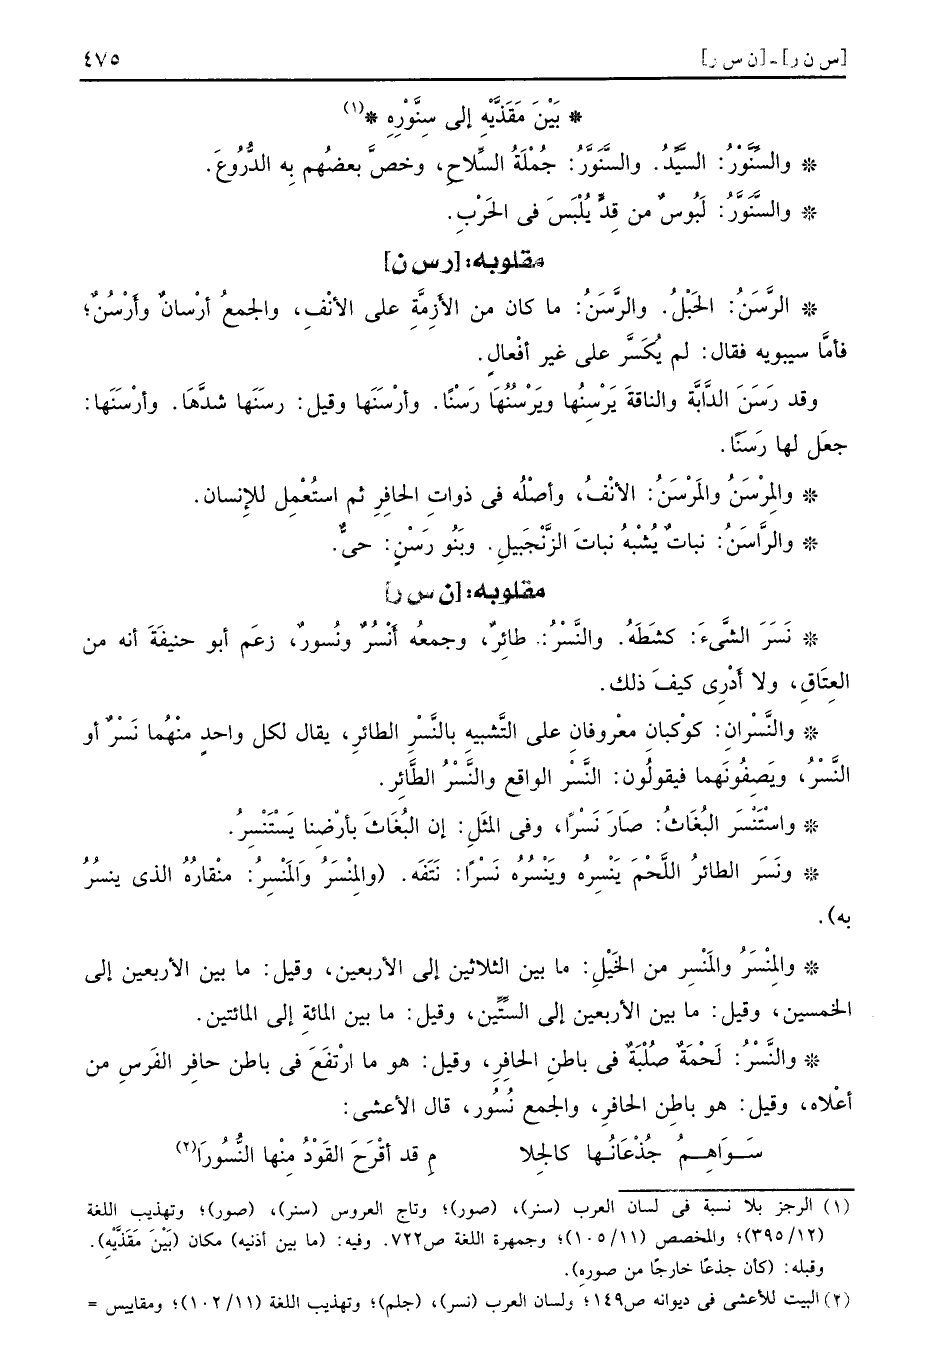 [س ن ر] - [ن س ر] ٤٧٥
* بَيْنَ مَقَذَّيْهِ إلى سِنَّوْرِهِ *(١)
* والسِّنَّوْرُ: السيِّدُ. والسَّنَوَّرُ: جُمْلَةُ السِّلاحِ، وخصَّ بعضُهم بِه الدُّرُوعَ.
* والسَّنَوَّرُ: لَبُوسٌ من قِدٍّ يُلْبَسَ فى الحَرْبِ.
مقلوبه: [ر س ن]
* الرَّسَنُ: الحَبْلُ. والرَّسَنُ: ما كان من الأزِمَّةِ على الأنْفِ، والجمعُ أرْسانٌ وأَرْسُنٌ؛
فأمَّا سيبويه فقال: لم يُكَسَّر على غير أفْعالٍ.
وقد رَسَنَ الدَّابَّةَ والناقةَ يَرْسِنُها ويَرْسُنُهَا رَسْنًا. وأرْسَنَها وقيل: رسَنَها شدَّهَا. وأرْسَنَها:
جعَل لها رَسَنًا.
* والمِرْسَنُ والمَرْسَنُ: الأنْفُ، وأصْلُه فى ذواتِ الحافِرِ ثم استُعْمِل للإنسان.
* والرَّاسَنُ: نباتٌ يُشْبهُ نباتَ الزَّنْجَبيلِ. وبَنُو رَسْنٍ: حىٌّ.
مقلوبه: [ن س ر]
* نَسَرَ الشَّىءَ: كشَطَهُ. والنَّسْرُ: طائرٌ، وجمعُه أَنْسُرٌ ونُسورٌ، زعَم أبو حنيفَةَ أنه من
العِتَاقِ، ولا أَدْرِى كيفَ ذلك.
* والنَّسْران: كوْكبانِ معْروفانِ على التَّشبيهِ بالنَّسْرِ الطائرِ، يقال لكل واحدٍ منْهُما نَسْرٌ أو
النَّسْرُ، ويَصِفُونَهما فيقولُون: النَّسْر الواقع والنَّسْرُ الطَّائر.
* واستَنْسَر البُغَاثُ: صارَ نَسْرًا، وفى المثَلِ: إن البُغَاثَ بأرْضِنا يَسْتَنْسرُ.
* ونَسَر الطائرُ اللَّحْمَ يَنْسِرهُ ويَنْسُرُه نَسْرًا: نَتَفَه. (والمِنْسَرُ وَالمَنْسِرُ: منْقارُهُ الذى ينسرُ
به).
* والمِنْسَرُ والمَنْسِر من الخَيْلِ: ما بين الثلاثين إلى الأربعين، وقيل: ما بين الأربعين إلى
الخمسين، وقيل: ما بين الأربعين إلى السِّتِّين، وقيل: ما بين المائةِ إلى المائتين.
* والنَّسْرُ: لَحْمَةٌ صُلْبَةٌ فى باطنِ الحافِرِ، وقيل: هو ما ارْتفَعَ فى باطنِ حافِرِ الفَرسِ من
أعْلاه، وقيل: هو باطن الحافِرِ، والجمع نُسُور، قال الأعشى:
سَــوَاهِــمُ جُذْعَانُــها كالجِلا مِ قد أقْرَحَ القَوْدُ مِنْها النُّسُورَا(٢)
(١) الرجز بلا نسبة فى لسان العرب (سنر)، (صور)؛ وتاج العروس (سنر)، (صور)؛ وتهذيب اللغة
(١٢/ ٣٩٥)؛ والمخصص (١١/ ١٠٥)؛ وجمهرة اللغة ص٧٢٢. وفيه: (ما بين أذنيه) مكان (بَيْنَ مَقَذَّيْهِ).
وقبله: (كأن جذعًا خارجًا من صوره).
(٢) البيت للأعشى فى ديوانه ص١٤٩؛ ولسان العرب (نسر)، (جلم)؛ وتهذيب اللغة (١١/ ١٠٢)؛ ومقاييس =